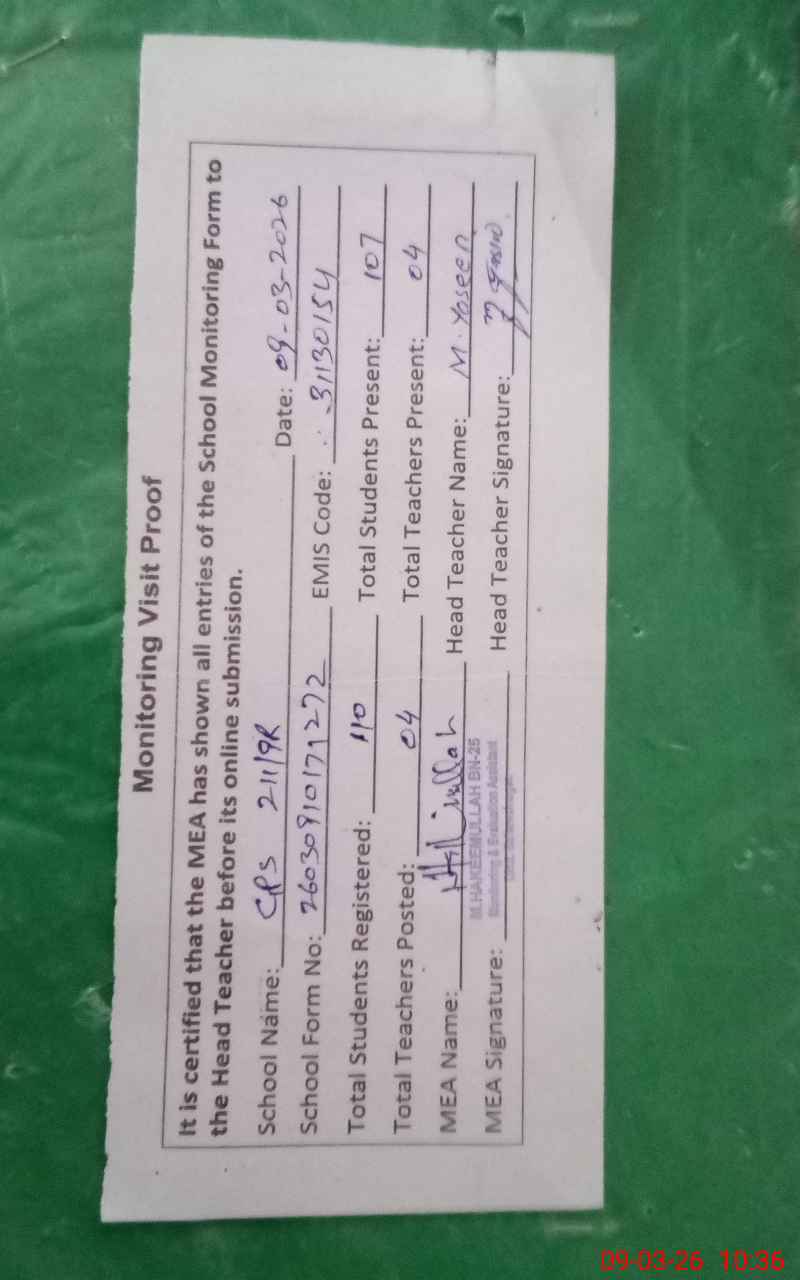 Monitoring Visit Proof
It is certified that the MEA has shown all entries of the School Monitoring Form to
the Head Teacher before its online submission.
School Name: GPS 211/9R Date: 09-03-2026
School Form No: 260309101791272 EMIS Code: 31130154
Total Students Registered: 110 Total Students Present: 107
Total Teachers Posted: 04 Total Teachers Present: 04
MEA Name: Head Teacher Name: M. Yaseen
M.HAKEEMULLAH BN-25
MEA Signature: Monitoring & Evaluation Assistant Head Teacher Signature:
09-03-26 10:36